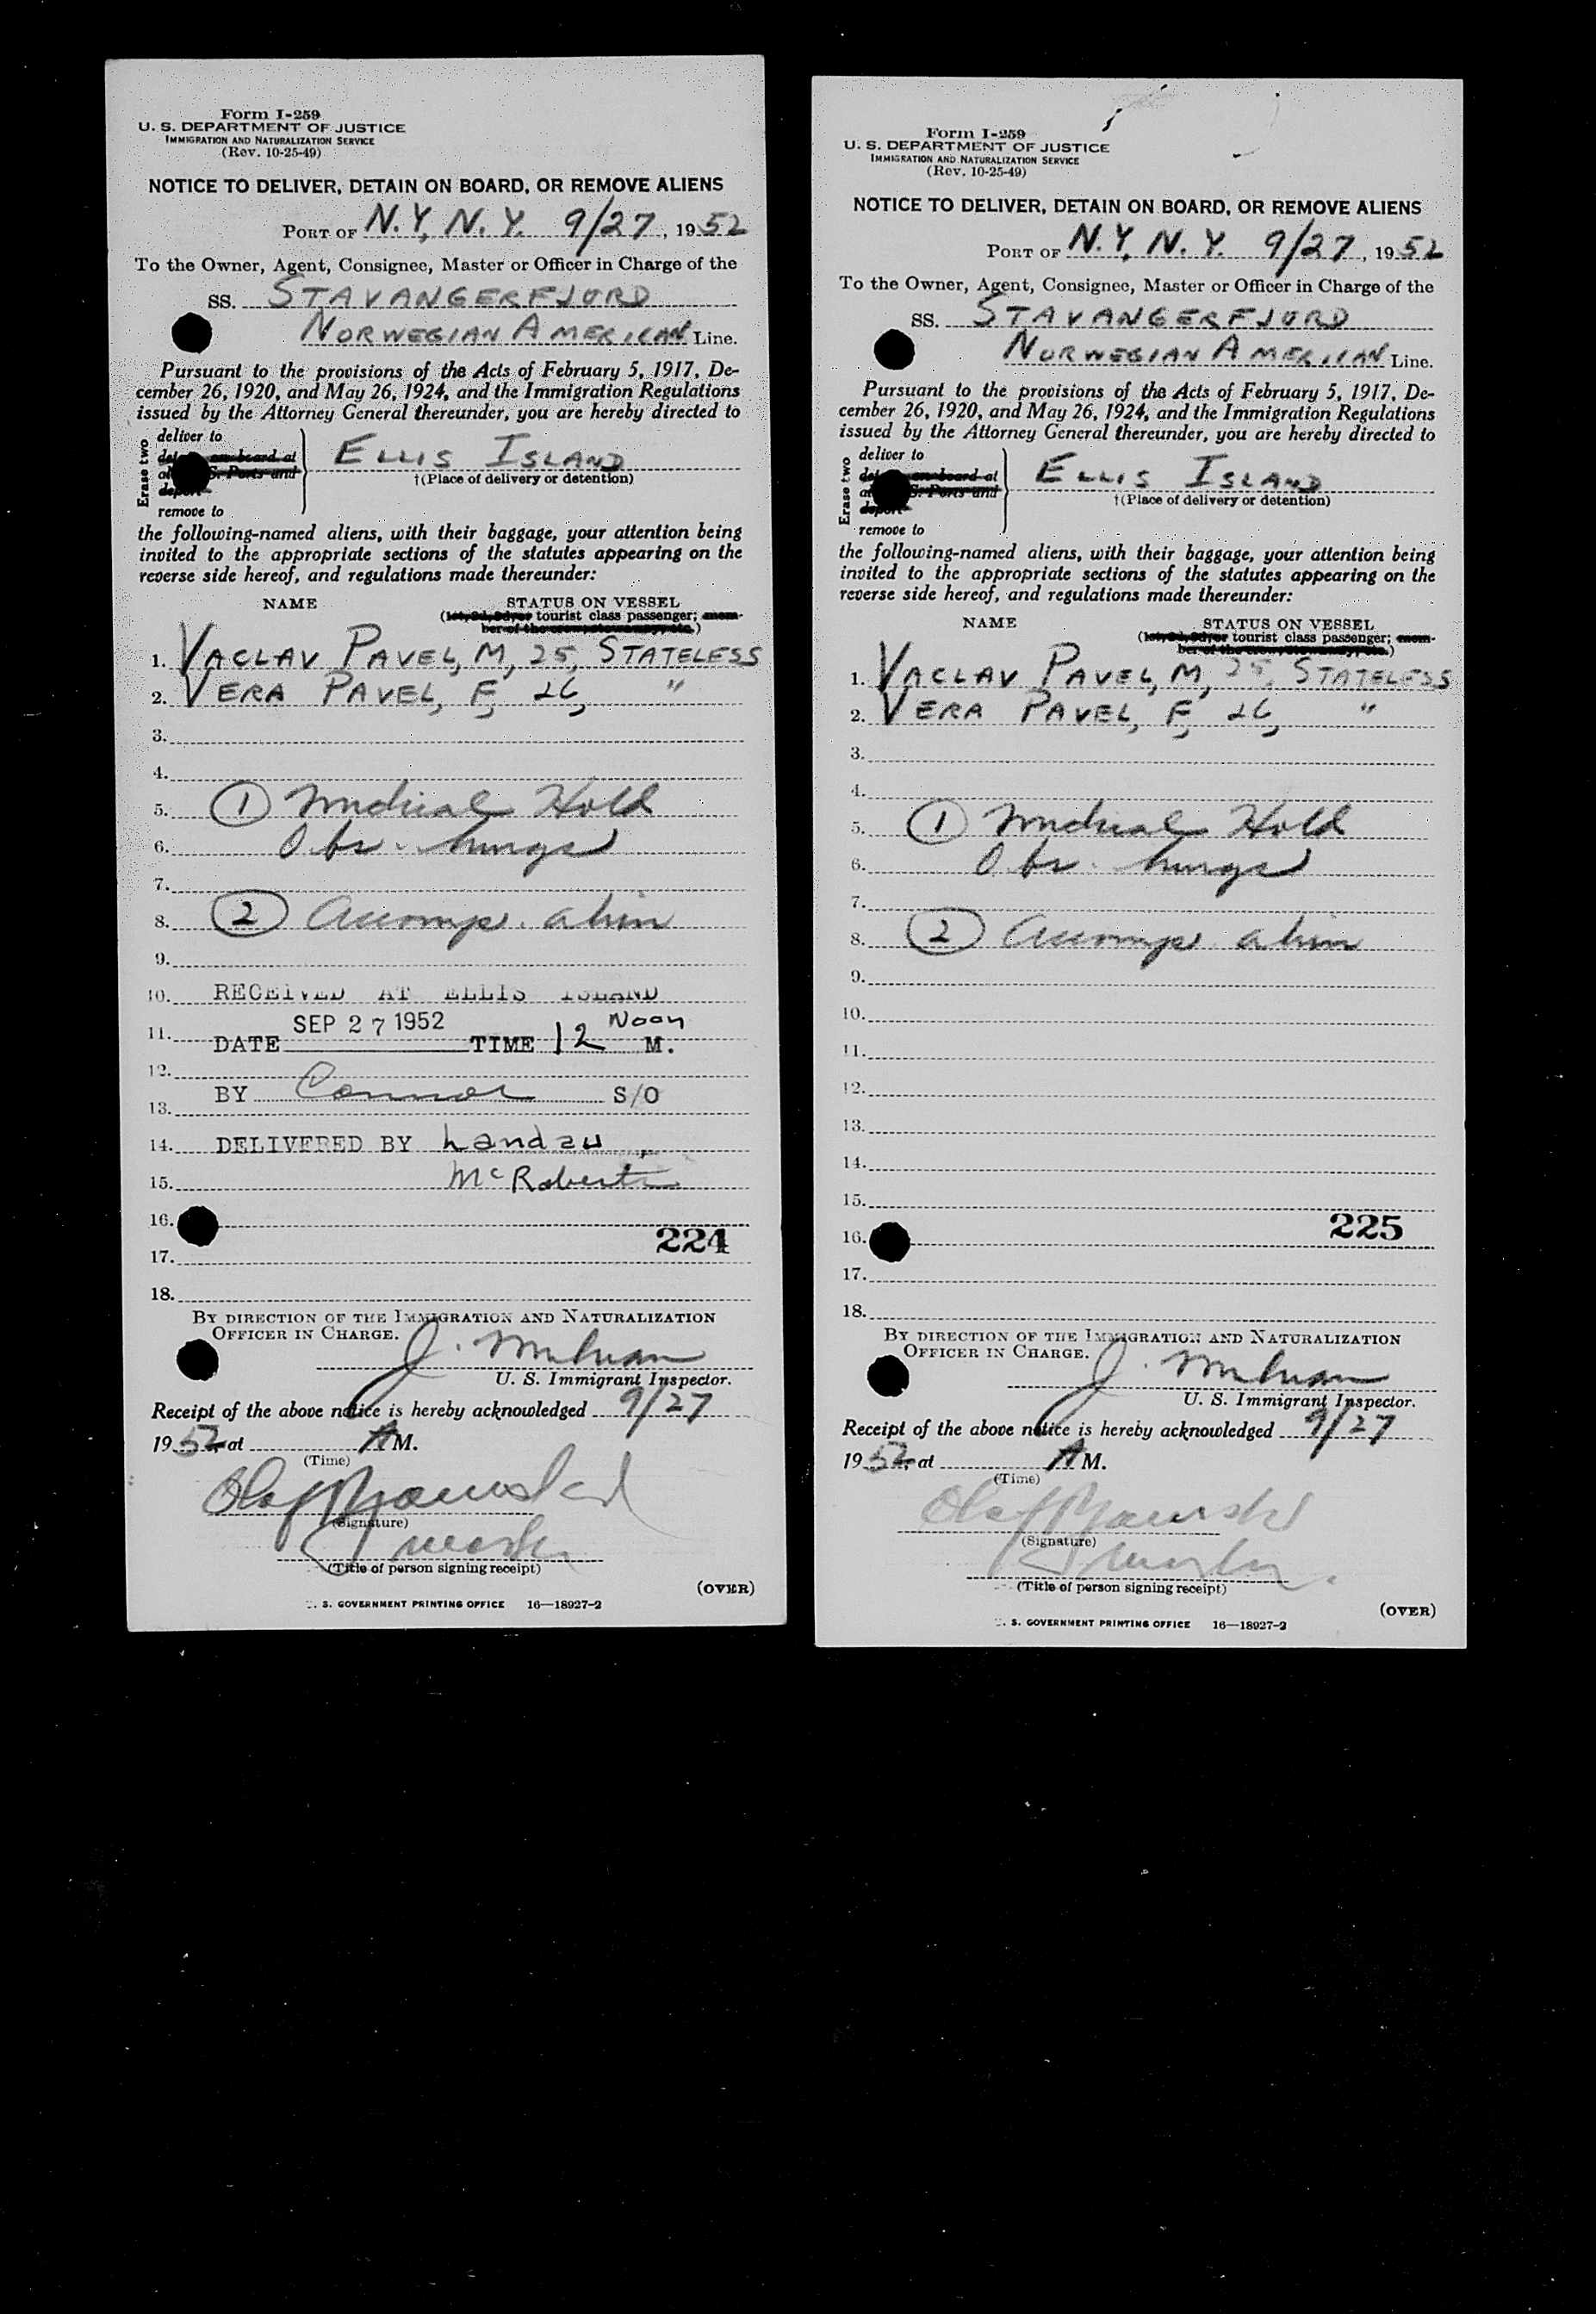 Form I-259
U. S. DEPARTMENT OF JUSTICE
IMMIGRATION AND NATURALIZATION SERVICE
(Rev. 10-25-49)
NOTICE TO DELIVER, DETAIN ON BOARD, OR REMOVE ALIENS
PORT OF N.Y, N.Y. 9/27, 1952
To the Owner, Agent, Consignee, Master or Officer in Charge of the
SS. STAVANGERFJORD
NORWEGIAN AMERICAN Line.
Pursuant to the provisions of the Acts of February 5, 1917, De-
cember 26, 1920, and May 26, 1924, and the Immigration Regulations
issued by the Attorney General thereunder, you are hereby directed to
Erase two
deliver to
on board at
S. Ports and
deport
remove to
ELLIS ISLAND
†(Place of delivery or detention)
the following-named aliens, with their baggage, your attention being
invited to the appropriate sections of the statutes appearing on the
reverse side hereof, and regulations made thereunder:
NAME STATUS ON VESSEL
(1st, 2d, 3d, or tourist class passenger; mem-
ber of the crew, stowaway, etc.)
1. VACLAV PAVEL, M, 25, STATELESS
2. VERA PAVEL, F, 26, "
3.
4.
5. ① Medical Hold
6. Obs. lungs
7.
8. ② Accomp. alien
9.
10. RECEIVED AT ELLIS ISLAND
SEP 27 1952 Noon
11. DATE TIME 12 M.
12.
BY Connor S/O
13.
14. DELIVERED BY Landau
15. McRoberts
16.
224
17.
18.
BY DIRECTION OF THE IMMIGRATION AND NATURALIZATION
OFFICER IN CHARGE.
J.
U. S. Immigrant Inspector.
Receipt of the above notice is hereby acknowledged 9/27
1952 at A M.
(Time)
Olaf
(Signature)
(Title of person signing receipt)
(OVER)
U. S. GOVERNMENT PRINTING OFFICE 16—18927-2
Form I-259
U. S. DEPARTMENT OF JUSTICE
IMMIGRATION AND NATURALIZATION SERVICE
(Rev. 10-25-49)
NOTICE TO DELIVER, DETAIN ON BOARD, OR REMOVE ALIENS
PORT OF N.Y, N.Y. 9/27, 1952
To the Owner, Agent, Consignee, Master or Officer in Charge of the
SS. STAVANGERFJORD
NORWEGIAN AMERICAN Line.
Pursuant to the provisions of the Acts of February 5, 1917, De-
cember 26, 1920, and May 26, 1924, and the Immigration Regulations
issued by the Attorney General thereunder, you are hereby directed to
Erase two
deliver to
on board at
S. Ports and
deport
remove to
ELLIS ISLAND
†(Place of delivery or detention)
the following-named aliens, with their baggage, your attention being
invited to the appropriate sections of the statutes appearing on the
reverse side hereof, and regulations made thereunder:
NAME STATUS ON VESSEL
(1st, 2d, 3d, or tourist class passenger; mem-
ber of the crew, stowaway, etc.)
1. VACLAV PAVEL, M, 25, STATELESS
2. VERA PAVEL, F, 26, "
3.
4.
5. ① Medical Hold
6. Obs. lungs
7.
8. ② Accomp. alien
9.
10.
11.
12.
13.
14.
15.
225
16.
17.
18.
BY DIRECTION OF THE IMMIGRATION AND NATURALIZATION
OFFICER IN CHARGE.
J.
U. S. Immigrant Inspector.
Receipt of the above notice is hereby acknowledged 9/27
1952, at A M.
(Time)
Olaf
(Signature)
(Title of person signing receipt)
(OVER)
U. S. GOVERNMENT PRINTING OFFICE 16—18927-2